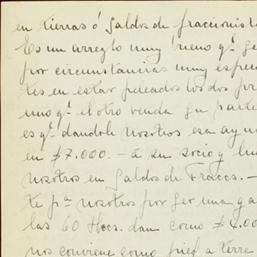 en tierras ó saldos de fraccionist
Es un arreglo muy bueno qe. se
por circunstancias muy espec
les en estar peleados los dos pr
uno qe. el otro venda su parte
es qe. dandole nosotros esa ayu
en $7.000.— a su socio y
nosotros en saldos de Fraccs.—
te pa. nosotros por ser una ga
las 60 Hecs. dan como $4.00
nos conviene como pied a terre